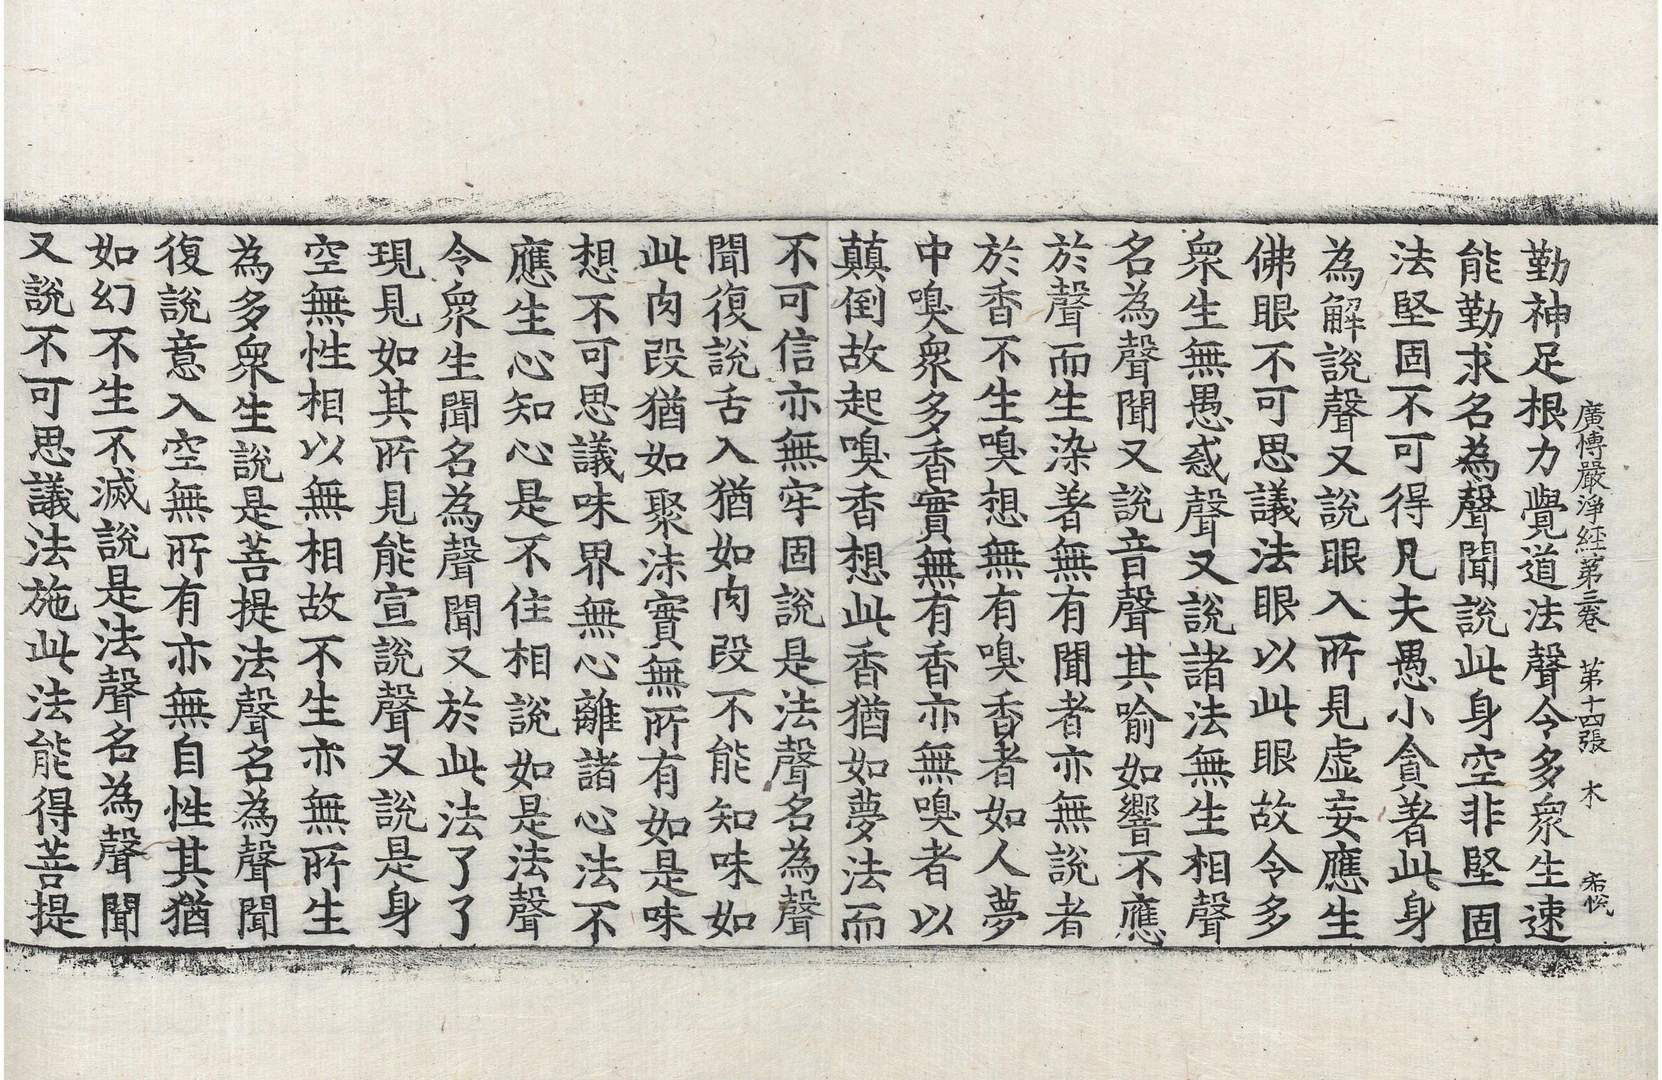 廣愽嚴淨經第三卷 第十四張 木
勤神足根力覺道法聲令多衆生速
能勤求名為聲聞說此身空非堅固
法堅固不可得凡夫愚小貪著此身
為解說聲又說眼入所見虛妄應生
佛眼不可思議法眼以此眼故令多
衆生無愚惑聲又說諸法無生相聲
名為聲聞又說音聲其喻如響不應
於聲而生染著無有聞者亦無說者
於香不生嗅想無有嗅香者如人夢
中嗅衆多香實無有香亦無嗅者以
顛倒故起嗅香想此香猶如夢法而
不可信亦無牢固說是法聲名為聲
聞復說舌入猶如肉段不能知味如
此肉段猶如聚沫實無所有如是味
想不可思議味界無心離諸心法不
應生心知心是不住相說如是法聲
令衆生聞名為聲聞又於此法了了
現見如其所見能宣說聲又說是身
空無性相以無相故不生亦無所生
為多衆生說是菩提法聲名為聲聞
復說意入空無所有亦無自性其猶
如幻不生不滅說是法聲名為聲聞
又說不可思議法施此法能得菩提